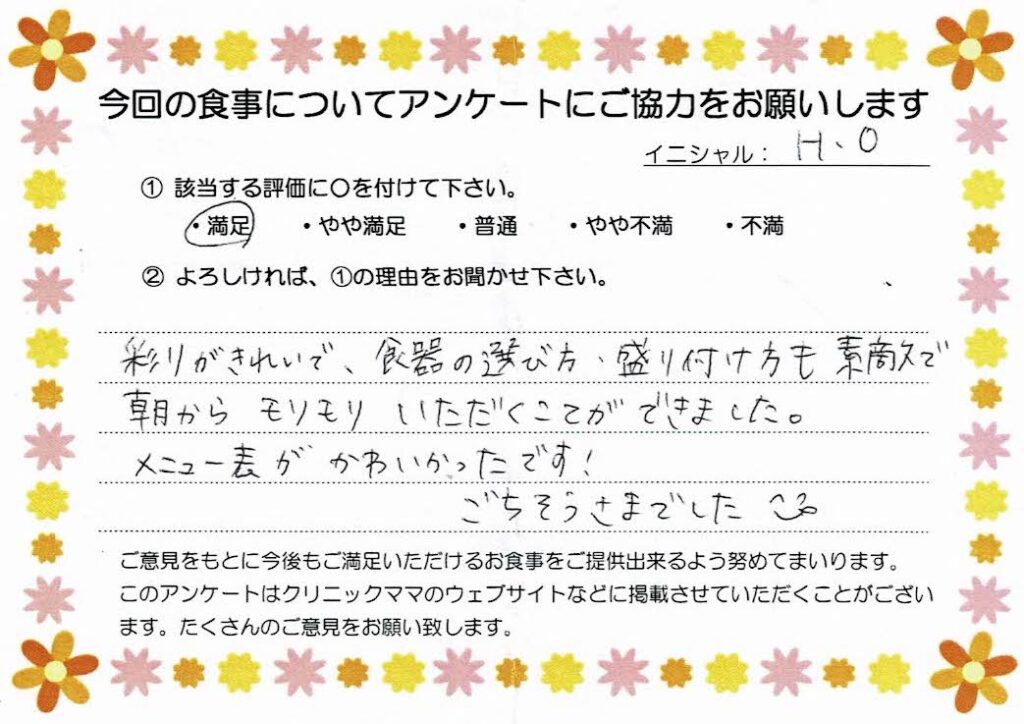 今回の食事についてアンケートにご協力をお願いします
イニシャル： H.O
① 該当する評価に○を付けて下さい。
・満足 ・やや満足 ・普通 ・やや不満 ・不満
② よろしければ、①の理由をお聞かせ下さい。
彩りがきれいで、食器の選び方、盛り付け方も素敵で
朝から モリモリ いただくことができました。
メニュー表が かわいかったです!
ごちそうさまでした
ご意見をもとに今後もご満足いただけるお食事をご提供出来るよう努めてまいります。
このアンケートはクリニックママのウェブサイトなどに掲載させていただくことがござい
ます。たくさんのご意見をお願い致します。